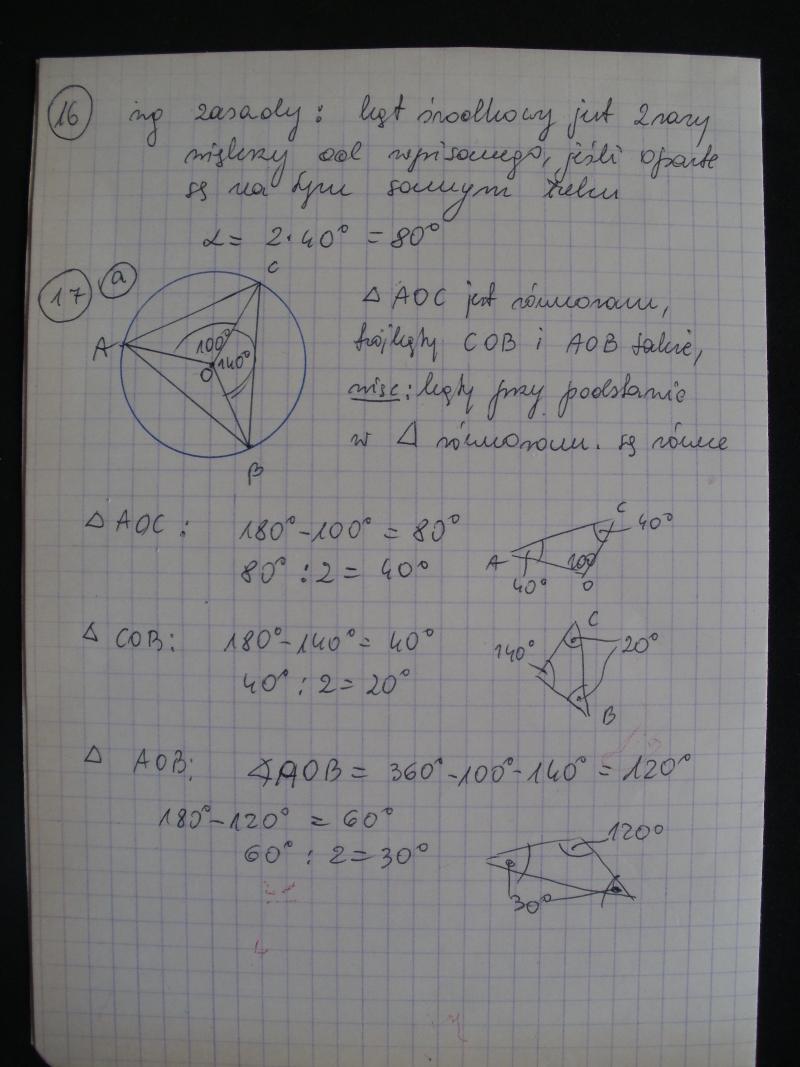 16 wg zasady: kąt środkowy jest 2 razy
większy od wpisanego, jeśli oparte
są na tym samym łuku
α = 2·40° = 80°
17 a
C
A
100°
140°
O
B
Δ AOC jest równoram,
trójkąty COB i AOB także,
więc: kąty przy podstawie
w Δ równoram. są równe
Δ AOC: 180°-100° = 80°
80° : 2 = 40°
C
40°
A
100
40°
O
Δ COB: 180°-140° = 40°
40° : 2 = 20°
C
140°
20°
B
Δ AOB: ∢AOB = 360°-100°-140° = 120°
180°-120° = 60°
60° : 2 = 30°
120°
30°